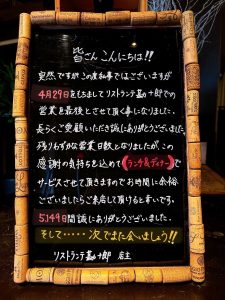 皆さん こんにちは!!
突然ですが、この度私事ではございますが
4月29日をもちまして リストランテ 勘十郎での
営業を最後とさせて頂く事になりました。
長らくご愛顧いただき誠にありがとうございました。
残りわずかな営業日数となりましたが、この
感謝の気持ちを込めて ランチ&ディナー で
サービスさせて頂きますのでお時間に余裕
ございましたらご来店して頂けると幸いです。
5,149日間誠にありがとうございました。
そして・・・・・次でまた会いましょう!!
リストランテ 勘十郎 店主